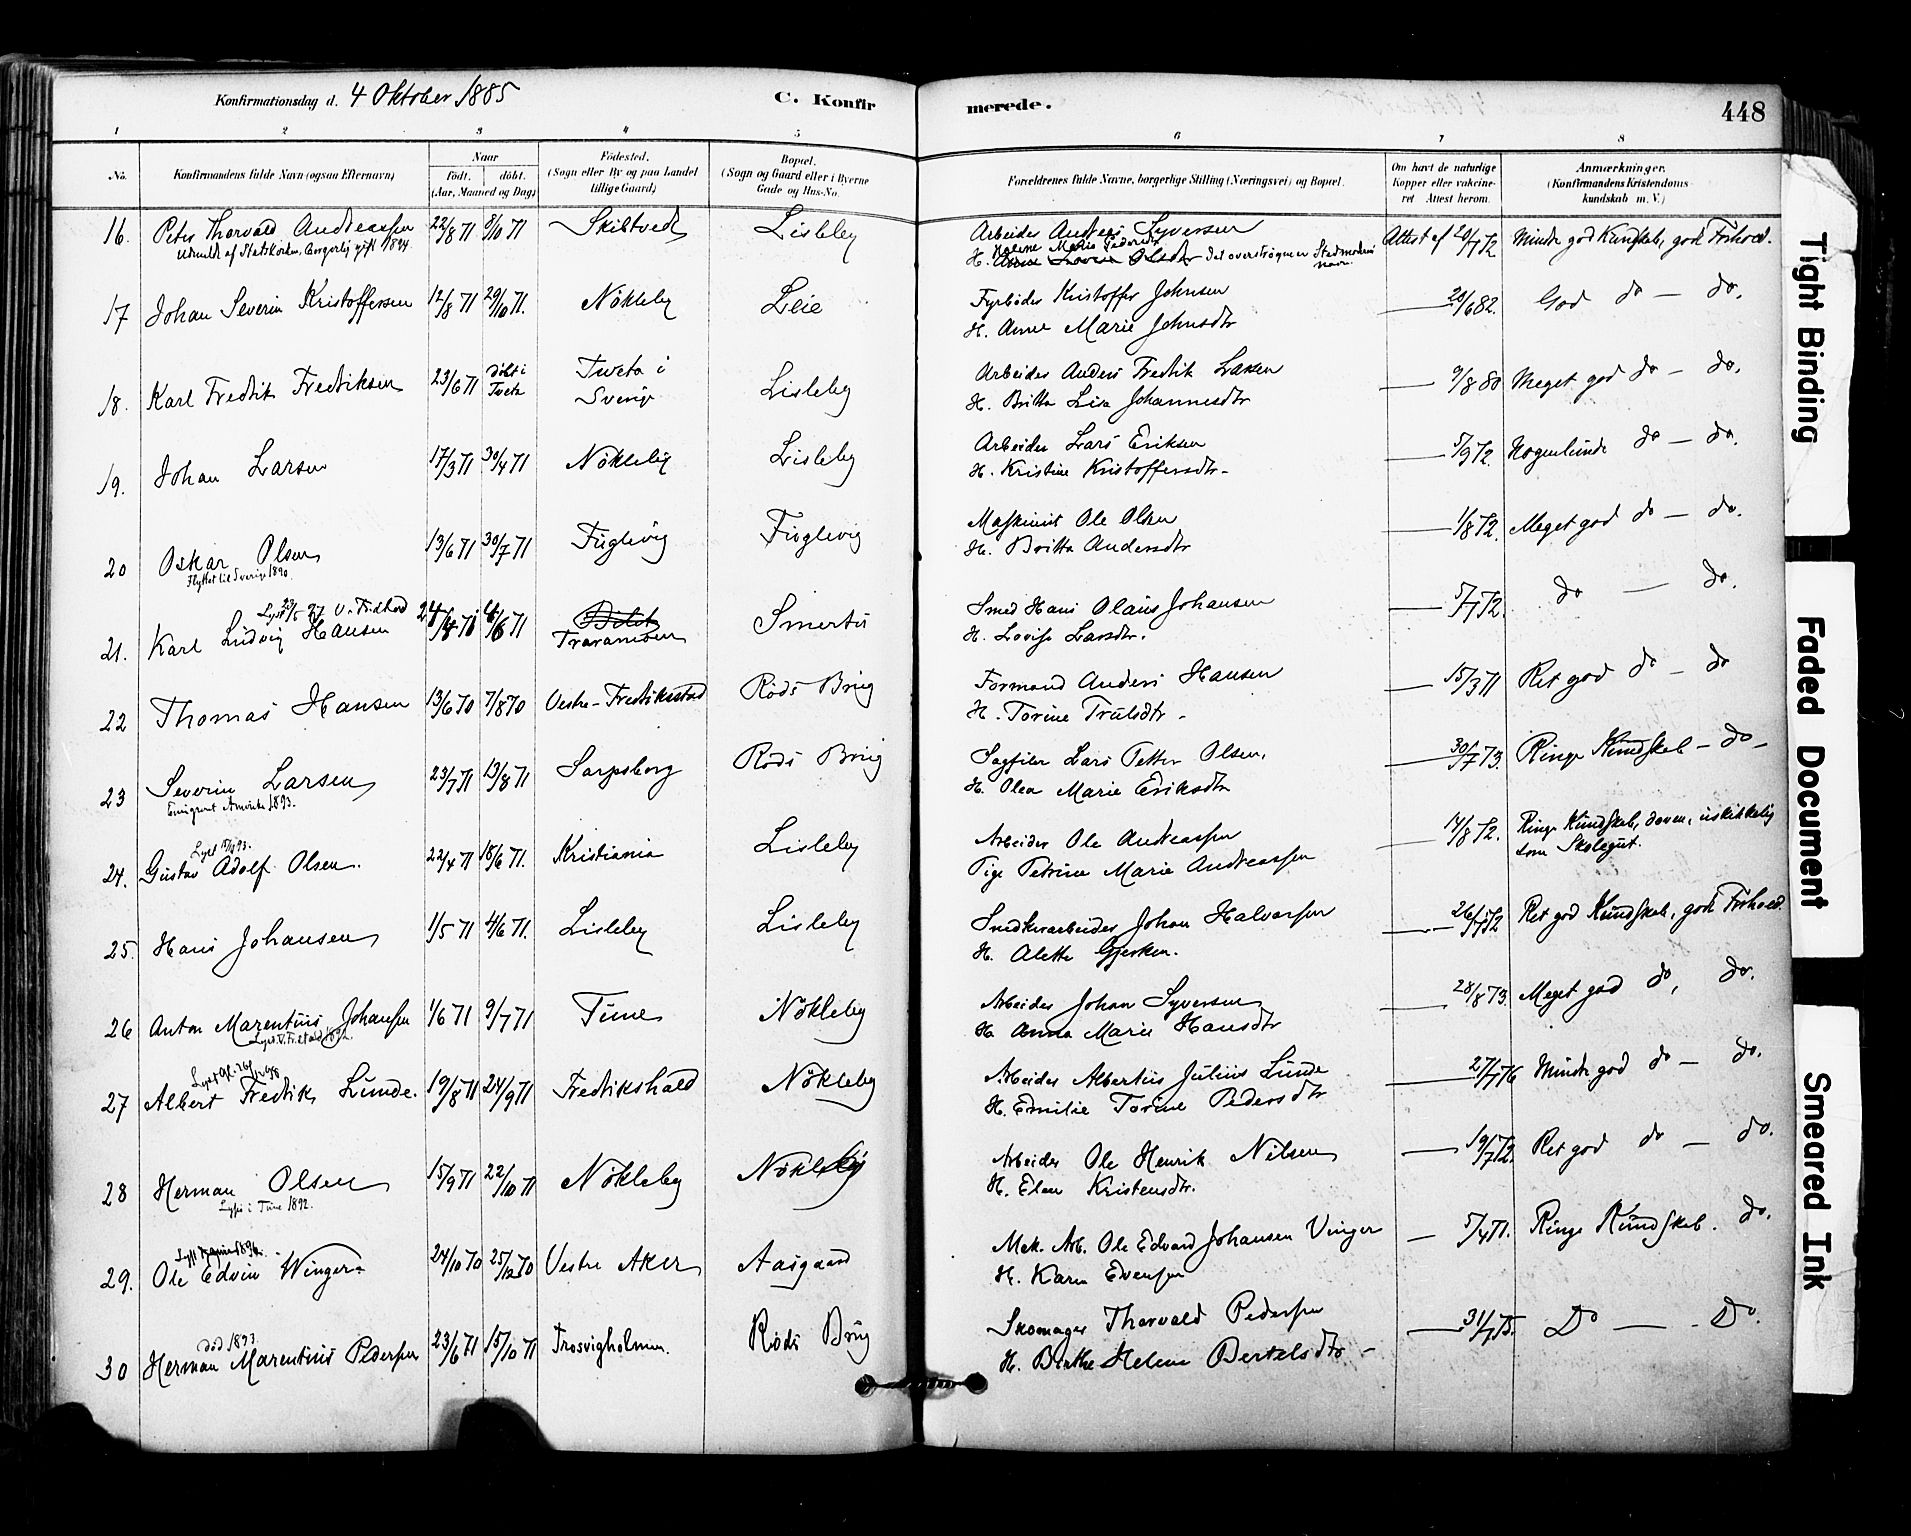 Konfirmationsdag d. 4 Oktober 1885 C. Konfir merede. 448
1 2 3 4 5 6 7 8
No. Konfirmandens fulde Navn (ogsaa Efternavn)
Naar
født. døbt.
(Aar, Maaned og Dag)
Födested.
(Sogn eller By og paa Landet
tillige Gaard)
Bopæl.
(Sogn og Gaard eller i Byerne
Gade og Hus-No.
Forældrenes fulde Navne, borgerlige Stilling (Næringsvei) og Bopæl.
Om havt de naturlige
Kopper eller vakcine-
ret Attest herom.
Anmærkninger.
(Konfirmandens Kristendoms-
kundskab m. V.)
16. Peter Thorvald Andreassen 22/8 71 8/10 71 Skibtvedt Lisleby Arbeider Andreas Syversen Attest af 20/7 72 Mindre god Kundskab, god Forhold.
Udmeldt af Statskirken, borgerlig gift 1894.
Helene Marie
H. Anne Lovise Olsdtr det overstrøgne er Stedmoderens
navn
17 Johan Severin Kristoffersen 12/8 71 29/10 71. Nökleby Leie Fyrbøder Kristoffer Johnsen 20/6 82. God do — do.
H. Anne Marie Johnsdtr
18. Karl Fredrik Fredriksen 23/6 71 döbt i Tveta Tveta i Sverige Lisleby Arbeider Anders Fredrik Larsen 9/8 80 Meget god do — do.
H. Britta Lisa Johannesdtr
19. Johan Larsen 17/3 71 30/4 71 Nökleby Lisleby Arbeider Lars Eriksen 5/9 72. Nogenlunde do — do.
H. Kristine Kristoffersdtr.
20 Oskar Olsen 13/6 71 30/7 71 Fuglevig Fuglevig Maskinist Ole Olsen 1/8 72. Meget god do — do.
Flyttet til Sverige 1890.
H. Britta Andersdtr
21. Karl Ludvig Hansen 24/4 71 4/6 71 Traranæen Smertu Smed Hans Olaus Johansen 5/7 72. do — do.
H. Lovise Larsdtr.
22 Thomas Hansen 13/6 70 7/8 70 Vestre-Fredrikstad Röds Brug Formand Anders Hansen 15/3 71 Ret god do — do
H. Torine Trulsdtr
23 Severin Larsen 23/7 71 13/8 71 Sarpsborg Röds Brug Sagfiler Lars Petter Olsen. 30/7 73. Ringe Kundskab — do —
Emigreret Amerika 1893.
H. Olea Marie Eriksdtr
24. Gustav Adolf Olsen. 22/4 71 18/6 71. Kristiania Lisleby Arbeider Ole Andreassen 14/8 72. Ringe Kundskab, doven, uskikkelig
som Skolegut.
Pige Petrine Marie Andreassen
25. Hans Johansen 1/5 71 4/6 71. Lisleby Lisleby Snedkerarbeider Johan Halvorsen 26/7 72 Ret god Kundskab, godt Forhold.
H. Alette Gjerken.
26 Anton Marentius Johansen 1/6 71 9/7 71 Tune Nökleby Arbeider Johan Syversen 28/8 73. Meget god do, do.
H. Anna Marie Hansdtr
27 Albert Fredrik Lunde. 19/8 71 24/9 71 Fredrikshald Nökleby Arbeider Albertus Julius Lunde 27/7 76 Mindre god do — do.
H. Emilie Torine Pedersdtr
28 Herman Olsen 15/9 71 22/10 71 Nökleby Nökleby Arbeider Ole Henrik Nilsen 19/7 72. Ret god do — do.
Lyst i Tune 1892.
H. Elen Kristensdtr.
29. Ole Edvin Winger 24/10 70 25/12 70 Vestre Aker Aasgaard Mek. Arb. Ole Edvard Johansen Vinger 5/4 71. Ringe Kundskab. do.
H. Karen Evensen
död 1893.
30 Herman Marentius Pedersen 23/6 71 15/10 71 Trosvigholmen. Röds Brug Skomager Thorvald Pedersen 31/7 75. Do — Do.
H. Birthe Helene Bertelsdtr
Tight Binding
Faded Document
Smeared Ink